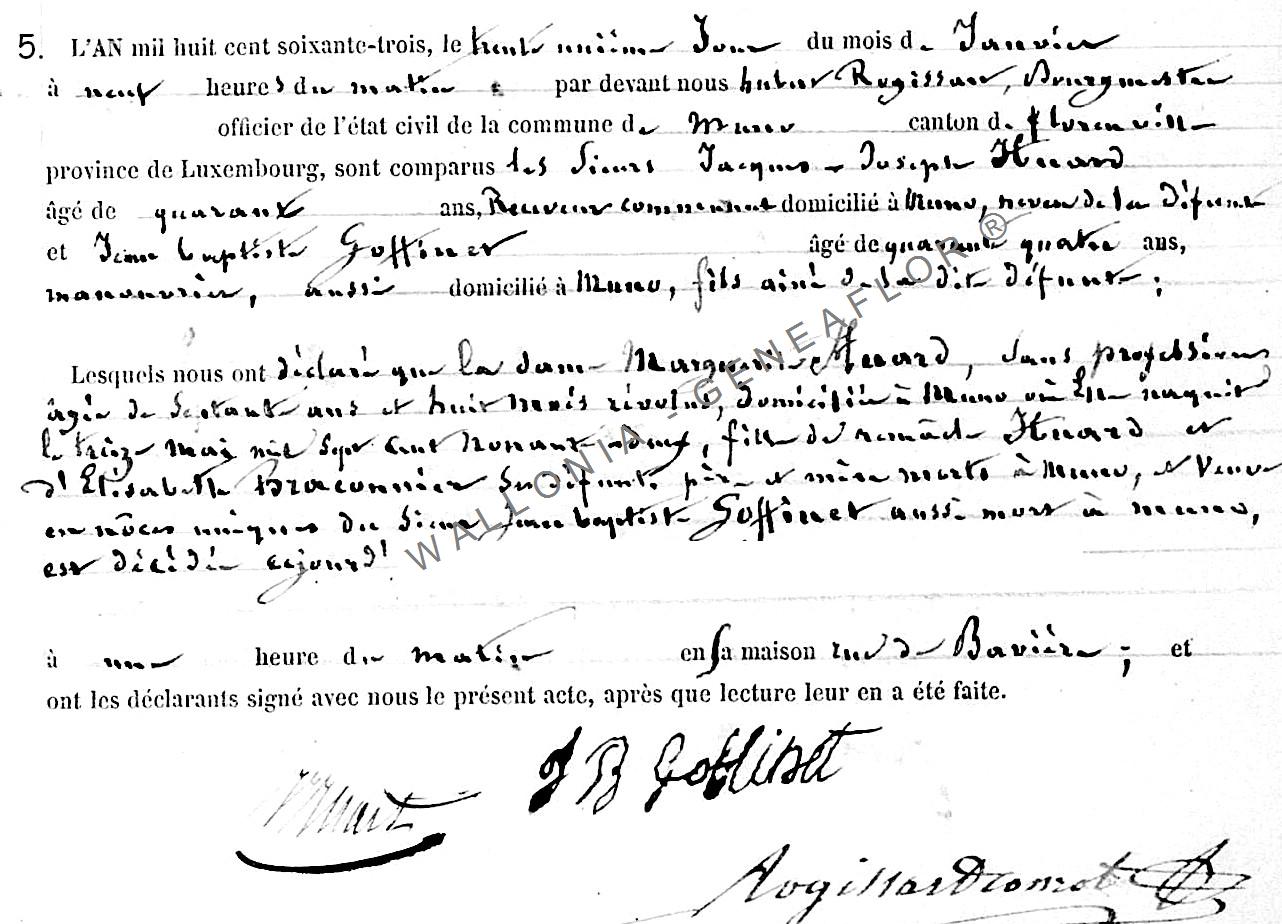 5. L'AN mil huit cent soixante-trois, le trente unième Jour du mois de Janvier
à neuf heures du matin par devant nous hubert Rogissart, Bourgmestre
officier de l'état civil de la commune de Muno canton de florenville
province de Luxembourg, sont comparus les Sieurs Jacques-Joseph Huard
âgé de quarante ans, Receveur communal domicilié à Muno, neveu de la défunte
et Jean baptiste Goffinet âgé de quarante quatre ans,
manouvrier, aussi domicilié à Muno, fils ainé de la dite défunte;
Lesquels nous ont déclaré que la dame Marguerite Huard, sans profession
âgée de Septante ans et huit mois révolus, domiciliée à Muno où Elle naquit
le treize Mai mil Sept Cent Nonante-deux, fille de remâcle Huard et
d'Elisabeth Braconnier Ses défunts père et mère morts à Muno, et Veuve
en nôces uniques du Sieur Jean baptiste Goffinet aussi mort à muno,
est décédée cejourd'
à une heure du matin en Sa maison rue de Bavière; et
ont les déclarants signé avec nous le présent acte, après que lecture leur en a été faite.
J B Goffinet
Huart
Rogissart
WALLONIA - GENEAFLOR ®